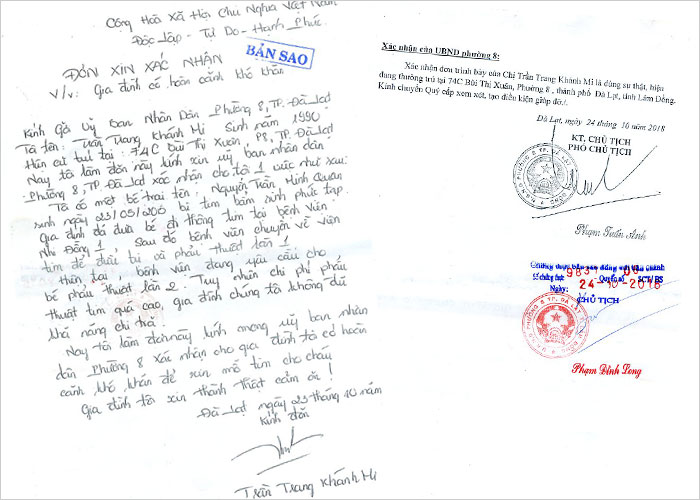 Cộng Hoà Xã Hội Chủ Nghĩa Việt Nam
Độc Lập - Tự Do - Hạnh Phúc.
BẢN SAO
ĐƠN XIN XÁC NHẬN
V/v: Gia đình có hoàn cảnh khó khăn
Kính Gởi Uỷ Ban Nhân Dân Phường 8, TP. Đà Lạt
Tôi tên: Trần Trang Khánh Mi Sinh năm 1990
Hiện cư trú tại: 74C Bùi Thị Xuân, P8, TP. Đà Lạt
Nay tôi làm đơn này kính xin uỷ ban nhân dân
Phường 8, TP. Đà Lạt xác nhận cho tôi 1 việc như sau:
Tôi có một bé trai tên: Nguyễn Trần Minh Quân
sinh ngày 25/05/2016 bị tim bẩm sinh phức tạp.
Gia đình đã đưa bé đi thông tim tại bệnh viện
Nhi Đồng 1, Sau đó bệnh viện chuyển về Viện
tim để điều trị và phẫu thuật lần 1
Hiện tại, bệnh viện đang yêu cầu cho
bé phẫu thuật lần 2. Tuy nhiên chi phí phẫu
thuật tim quá cao, gia đình chúng tôi không đủ
khả năng chi trả.
Nay tôi làm đơn này kính mong uỷ ban nhân
dân Phường 8 Xác nhận cho gia đình tôi có hoàn
cảnh khó khăn để xin mổ tim cho cháu
Gia đình tôi xin thành thật cảm ơn!
Đà Lạt ngày 23 tháng 10 năm
Kính đơn
Trần Trang Khánh Mi
Xác nhận của UBND phường 8:
Xác nhận đơn trình bày của Chị Trần Trang Khánh Mi là đúng sự thật, hiện
đang thường trú tại 74C Bùi Thị Xuân, Phường 8 , thành phố Đà Lạt, tỉnh Lâm Đồng.
Kính chuyển Quý cấp xem xét, tạo điều kiện giúp đỡ./.
Đà Lạt, ngày 24 tháng 10 năm 2018
KT. CHỦ TỊCH
PHÓ CHỦ TỊCH
Phạm Tuấn Anh
Chứng thực bản sao đúng với bản chính
Số chứng thực 983 Quyển số SCT/BS
Ngày: 24-10-2018
CHỦ TỊCH
Phạm Đình Long